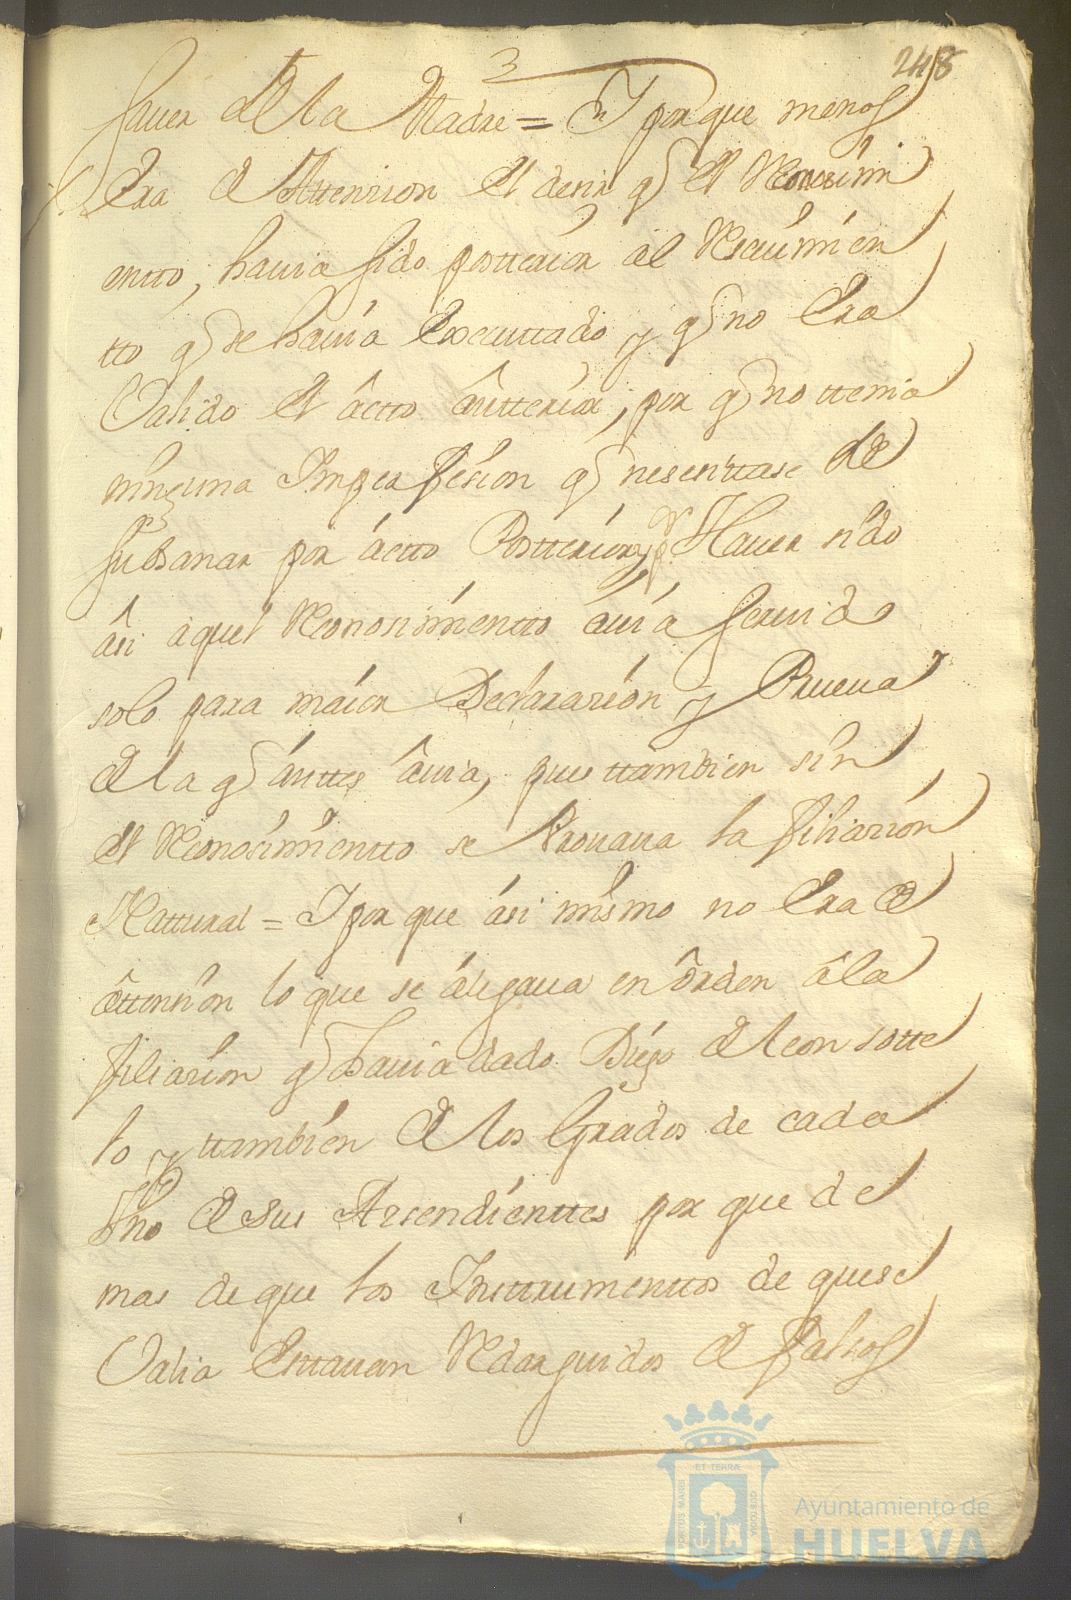 3
248
saver de la Madre = Y porque menos
Era de Attension el desir q el Reconosimi
entto, havia sido postterior al Resevimien
tto q se havia Executtado y q no Era
Valido el ácto ántterior, por q no ttenia
ninguna Imperfesion q nesesittase de
subsanar por ácto Postterior, y Haver sido
ási aquel Reconosimientto ávia servido
solo para máior Declarasion y Prueva
de la q ánttes ávia, pues ttambien sin
el Reconosimientto se Provava la filiasion
Nattural = Y por que ási mismo no Era de
áttension lo que se álegava en órden á la
filiasion q havia dado Diego de Leon sotte
lo y ttambien de los Grados de cada
Vno de sus Assendienttes por que de
mas de que los Insttrumenttos de quese
Valia Esttavan Redarguidos de falsos
PORTUS MARIS
ET TERRÆ
CUSTODIA
Ayuntamiento de
HUELVA